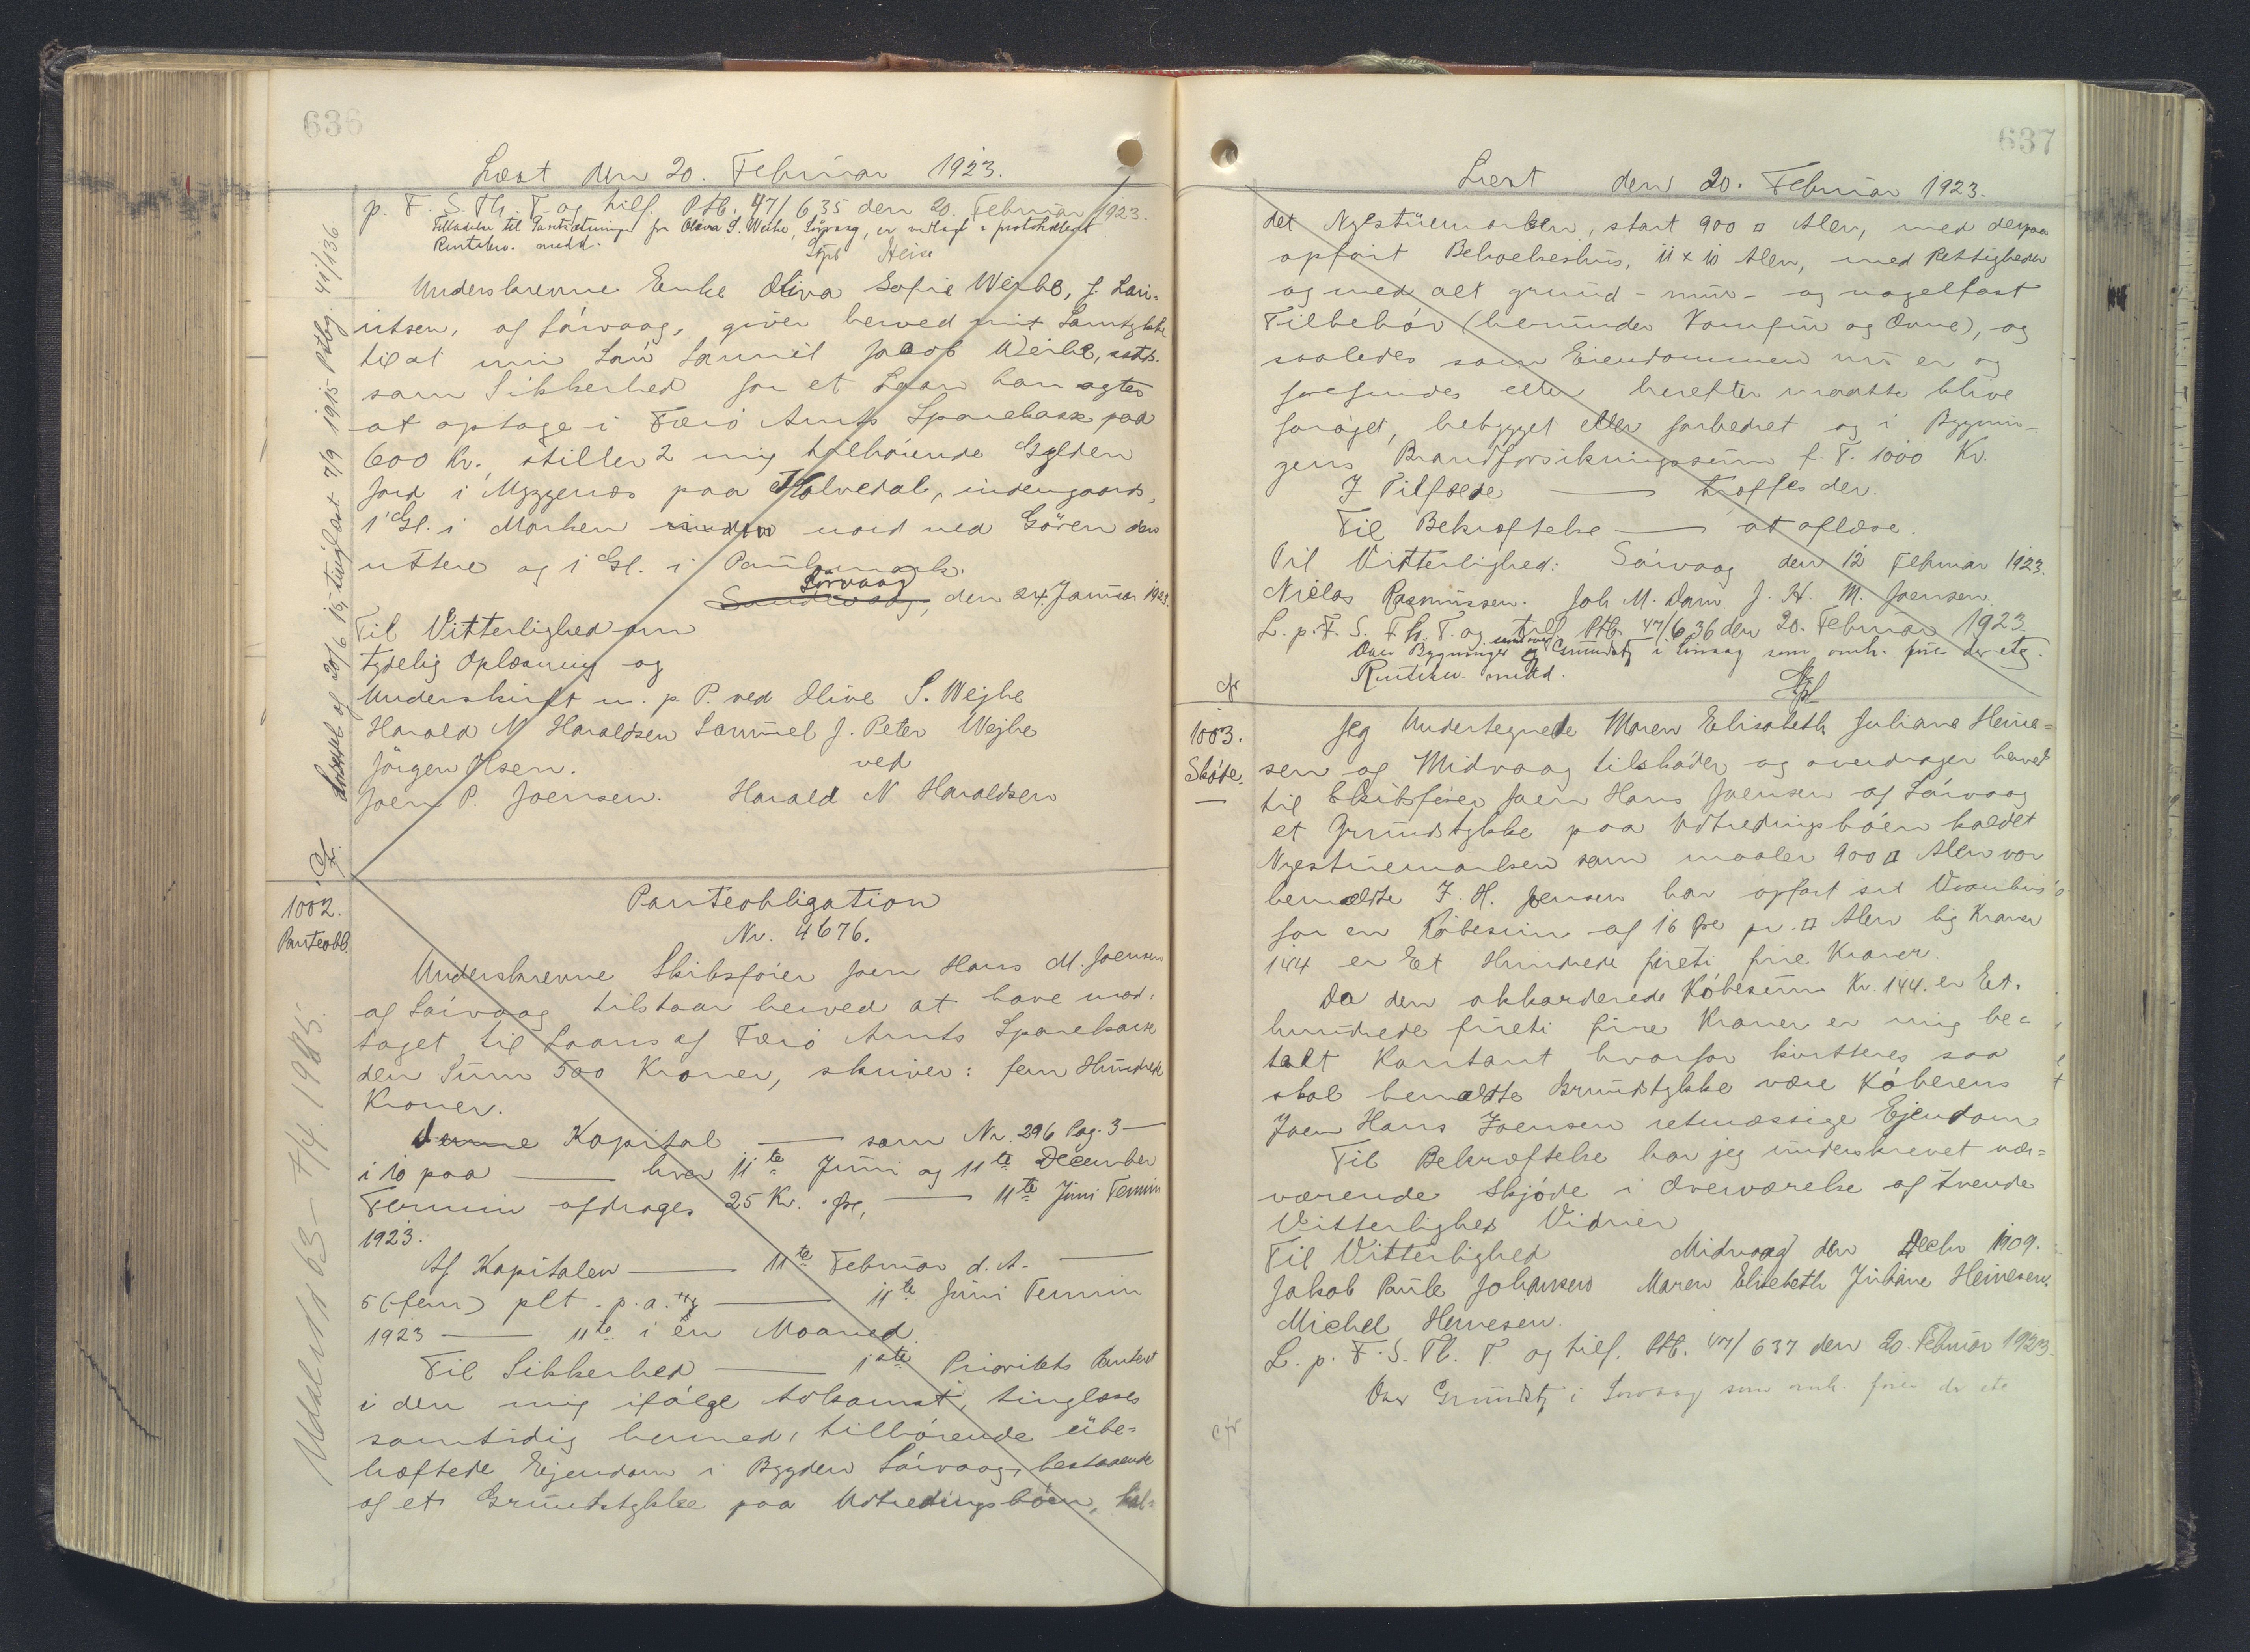 636
Læst den 20. Februar 1923.
p. F. S. Th. T. og tilf. Ptb. 47/635 den 20. Februar 1923.
Tilladelse til Pantsætningen fra Oliva S. Weihe, Sörvaag, er vedlagt & protokolleret
Rentebev. medd.
Underskrevne Enke Oliva Sofie Weihe, f. Lau-
ritsen, af Sörvaag, giver herved mit Samtykke
til at min Søn Samuel Jacob Weihe, sstds.
som Sikkerhed for et Laan han agter
at optage i Færö Amts Sparekasse paa
600 Kr. stiller 2 mig tilhörende Gylden
Jord i Myggenæs paa Holvedal, indengaards,
1 Gl. i Marken nord ved Gören den
uttere og 1 Gl. i
Sörvaag
Sandevaag, den 24. Januar 1923.
Til Vitterlighed om
tydelig Oplæsning og
Underskrift m. p. P. ved Olive S. Wejhe
Harald N Haraldsen Samuel J. Peter Wejhe
Jörgen Olsen. ved
Joen P. Joensen. Harald N Haraldsen
Pantebog 49/136
Cf.
1002.
Panteobl.
Panteobligation
Nr. 4676.
Underskrevne Skibsförer Joen Hans M. Joensen
af Sörvaag tilstaar herved at have mod-
taget til Laans af Færö Amts Sparekasse
den Sum 500 Kroner, skriver: fem Hundrede
Kroner.
Denne Kapital — som Nr. 296 Pag. 3 —
i 10 paa — hver 11te Juni og 11te December
Termin afdrages 25 Kr. Øre, — 11te Juni Termin
1923.
Af Kapitalen — 11te Februar d. A. —
5 (fem) pCt. p. a. — 11te Juni Termin
1923 — 11te i én Maaned.
Til Sikkerhed — 1ste Prioritets Panteret
i den mig ifölge Adkomst, tinglæses
samtidig hermed, tilhörende ube-
hæftede Ejendom i Bygden Sörvaag, bestaaende
af et Grundstykke paa Udtredingsböen, kal-
Udslettet 63 - 7/4. 1985.
637
Læst den 20. Februar 1923.
det Nyestuemarken, stort 900 □ Alen, med derpaa
opfört Beboelseshus, 11 x 10 Alen, med Rettigheder
og med alt grund- mur- og nagelfast
Tilbehör (herunder Komfur og Ovne), og
saaledes som Eiendommen nu er og
forefindes eller herefter maatte blive
foröget, bebygget eller forbedret og i Bygnin-
gens Brandforsikringssum f. T. 1000 Kr.
I Tilfælde — træffes der.
Til Bekræftelse — at aflæse.
Til Vitterlighed: Sörvaag den 12 Februar 1923.
Niclas Rasmussen. Joh M. Dam J. H. M. Joensen
L. p. F. S. Th. T. og tilf. Ptb. 47/636 den 20. Februar 1923
Over Bygninger og Grundst. i Sörvaag som omh. fines der etc.
Rentebev. medd.
cfr
1003.
Sköte.
Jeg Undertegnede Maren Elisabeth Juliane Heine-
sen af Midvaag tilsköder og overdrager herved
til Skibsförer Joen Hans Joensen af Sörvaag
et Grundstykke paa Udtredingsböen kaldet
Nyestuemarken som maaler 900 □ Alen vor
bemældte J. H. Joensen har opfört sit Vaanhus
for en Köbesum af 16 Øre pr. □ Alen lig Kroner
144 er Et Hundrede fireti fire Kroner.
Da den akkorderede Köbesum Kr. 144. er Et-
hundrede fireti fire Kroner er mig be-
talt Kontant hvorfor kvitteres saa
skal bemældte Grundstykke være Köberens
Joen Hans Joensen retmæssige Ejendom
Til Bekræftelse har jeg underskrevet nær-
værende Skjöde i Overværelse af tvende
Vitterligheds Vidner
Til Vitterlighed Midvaag den Decbr 1909.
Jakob Paule Johansen Maren Elisebeth Juliane Heinesen.
Michel Heinesen.
L. p. F. S. Th. T. og tilf. Ptb. 47/637 den 20. Februar 1923.
Over Grundst. i Sörvaag som omh. fines der etc
cfr